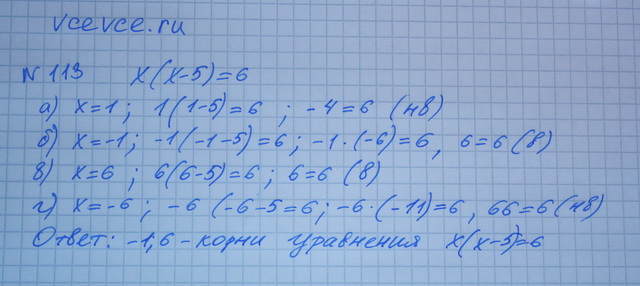 vcevce.ru
№ 113 x(x-5)=6
а) x=1; 1(1-5)=6 ; -4=6 (нв)
б) x=-1; -1(-1-5)=6; -1·(-6)=6, 6=6 (в)
в) x=6 ; 6(6-5)=6 ; 6=6 (в)
г) x=-6 ; -6 (-6-5=6; -6·(-11)=6, 66=6 (нв)
Ответ: -1,6 - корни уравнения x(x-5)=6